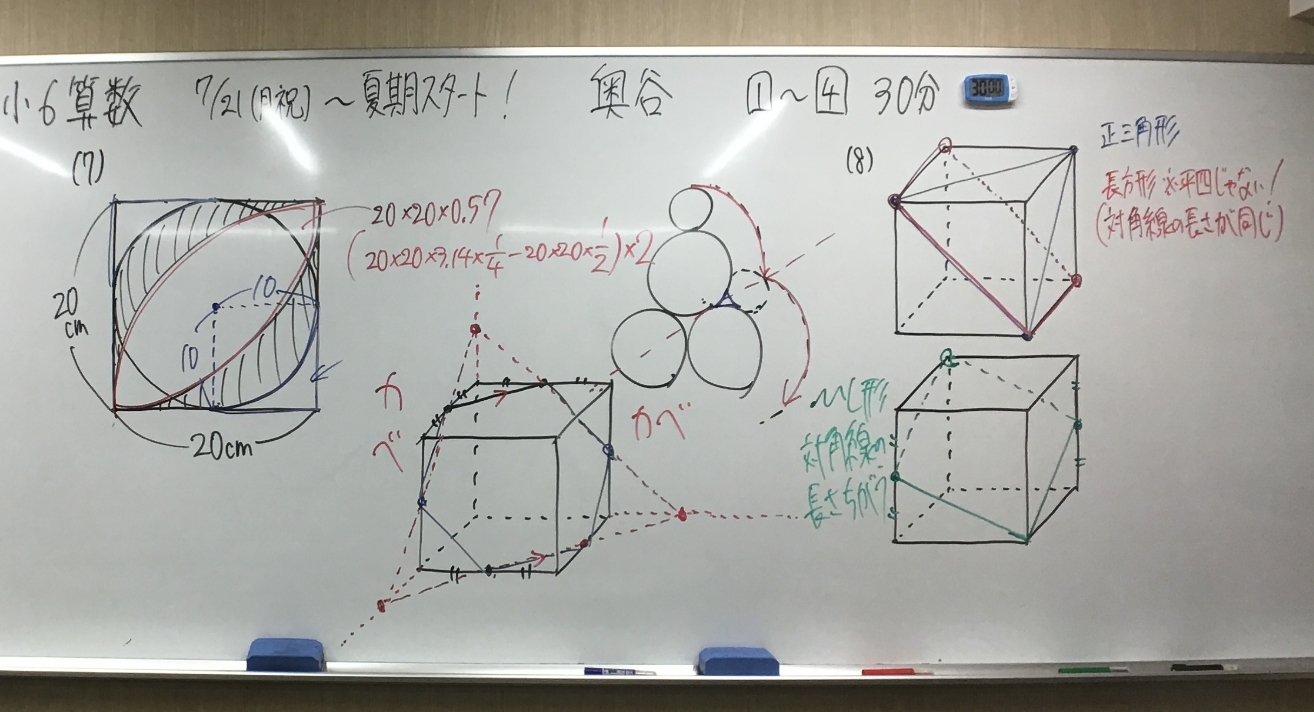 小6算数 7/21(月祝)～夏期スタート! 奥谷 1～4 30分
30:00
(7)
20cm
20cm
10
10
20×20×0.57
(20×20×3.14×1/4-20×20×1/2)×2
かべ
かべ
(8)
正三角形
長方形 ※平四じゃない!
(対角線の長さが同じ)
ひし形
対角線の
長さちがう